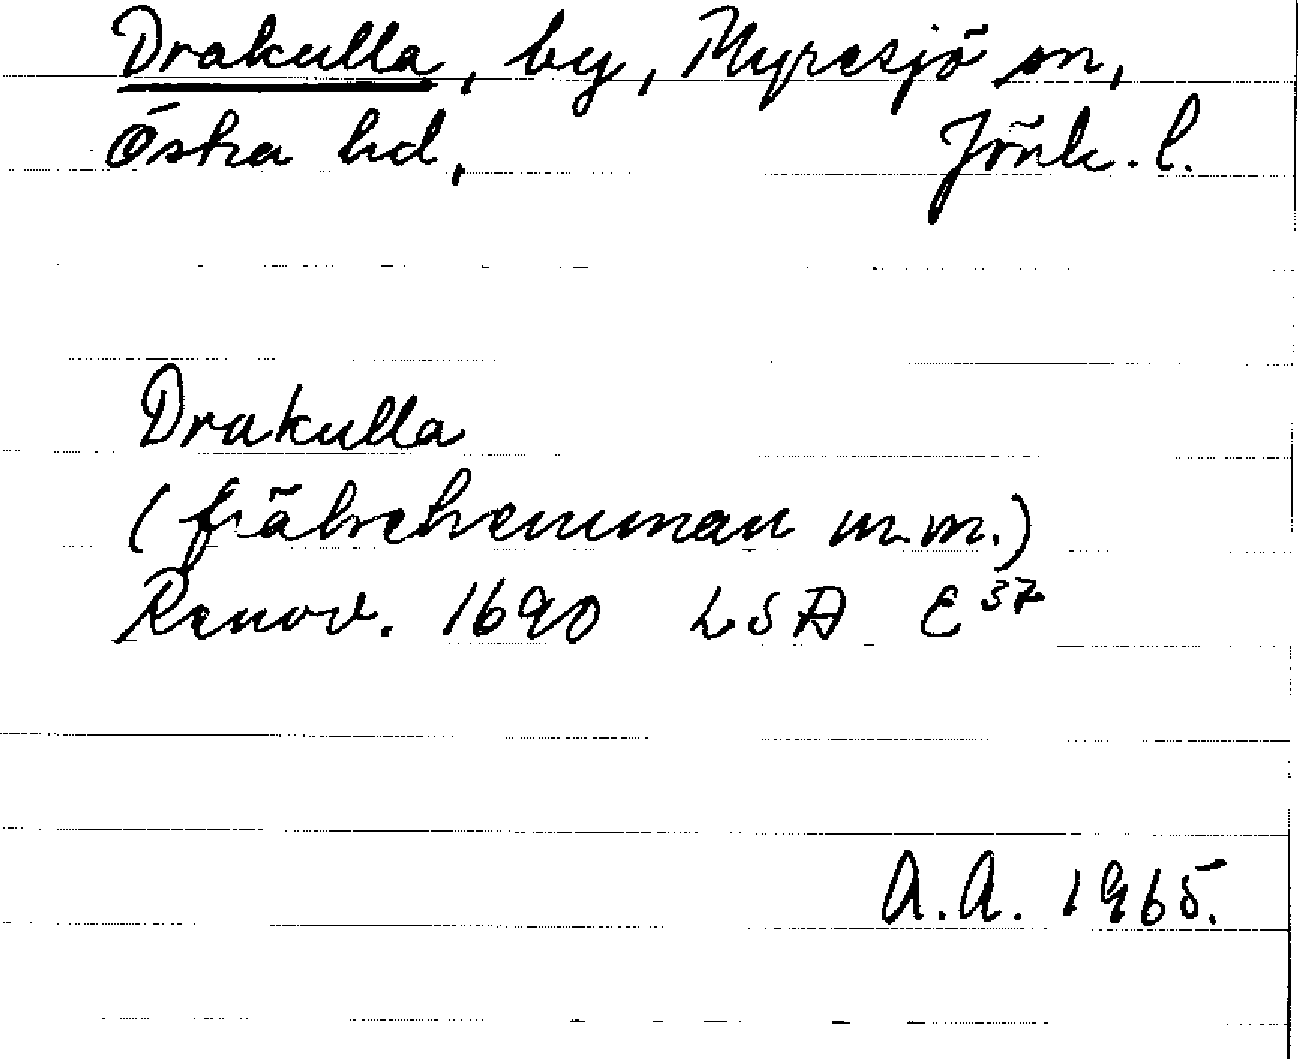 Drakulla, by, Myresjö sn,
Östra hd, Jönk. l.
Drakulla
(frälsehemman m.m.)
Renov. 1690 LSA E 37
A.A. 1965.